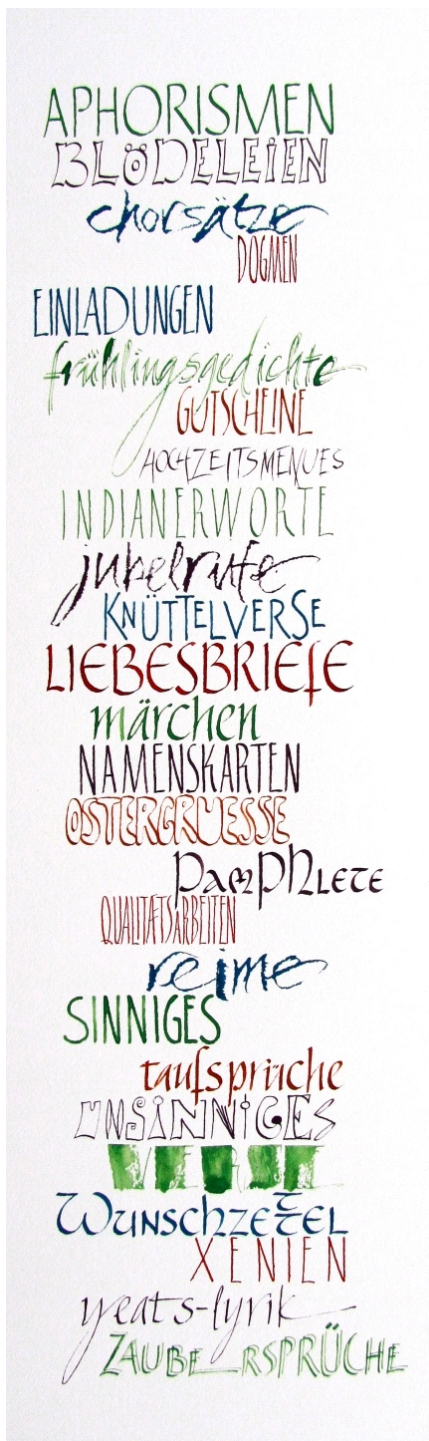 APHORISMEN
BLÖDELEIEN
chorsätze
DOGMEN
EINLADUNGEN
frühlingsgedichte
GUTSCHEINE
HOCHZEITSMENUES
INDIANERWORTE
jubelrufe
KNÜTTELVERSE
LIEBESBRIEfE
märchen
NAMENSKARTEN
OSTERGRUESSE
PAMPHLETE
QUALITÆTSARBEITEN
reime
SINNIGES
taufsprüche
UNSINNIGES
VERSE
WUNSCHZETTEL
XENIEN
yeats-lyrik
ZAUBE_RSPRÜCHE